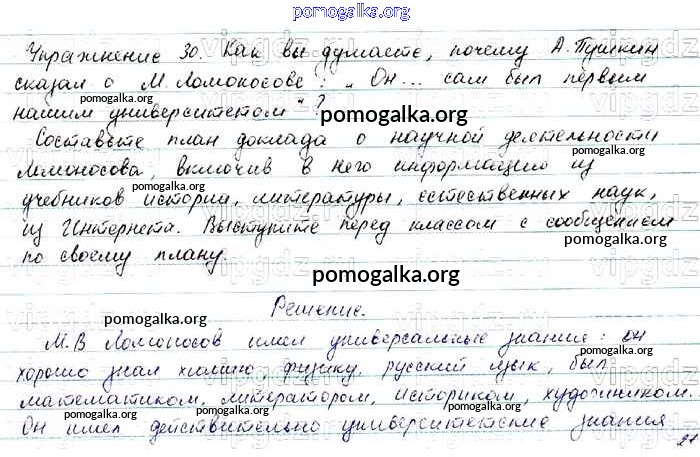 pomogalka.org
Упражнение 30. Как вы думаете, почему А. Пушкин
сказал о М. Ломоносове: „Он... сам был первым
pomogalka.org
нашим университетом"?
pomogalka.org
Составьте план доклада о научной деятельности
pomogalka.org
Ломоносова, включив в него информацию из
pomogalka.org
учебников истории, литературы, естественных наук,
из Интернета. Выступите перед классом с сообщением
pomogalka.org
по своему плану.
pomogalka.org
Решение.
pomogalka.org
М.В Ломоносов имел универсальные знания: он
хорошо знал химию, физику, русский язык, был
pomogalka.org
математиком, литератором, историком, художником.
pomogalka.org
pomogalka.org
Он имел действительно университетские знания
21
vipgdz.ru